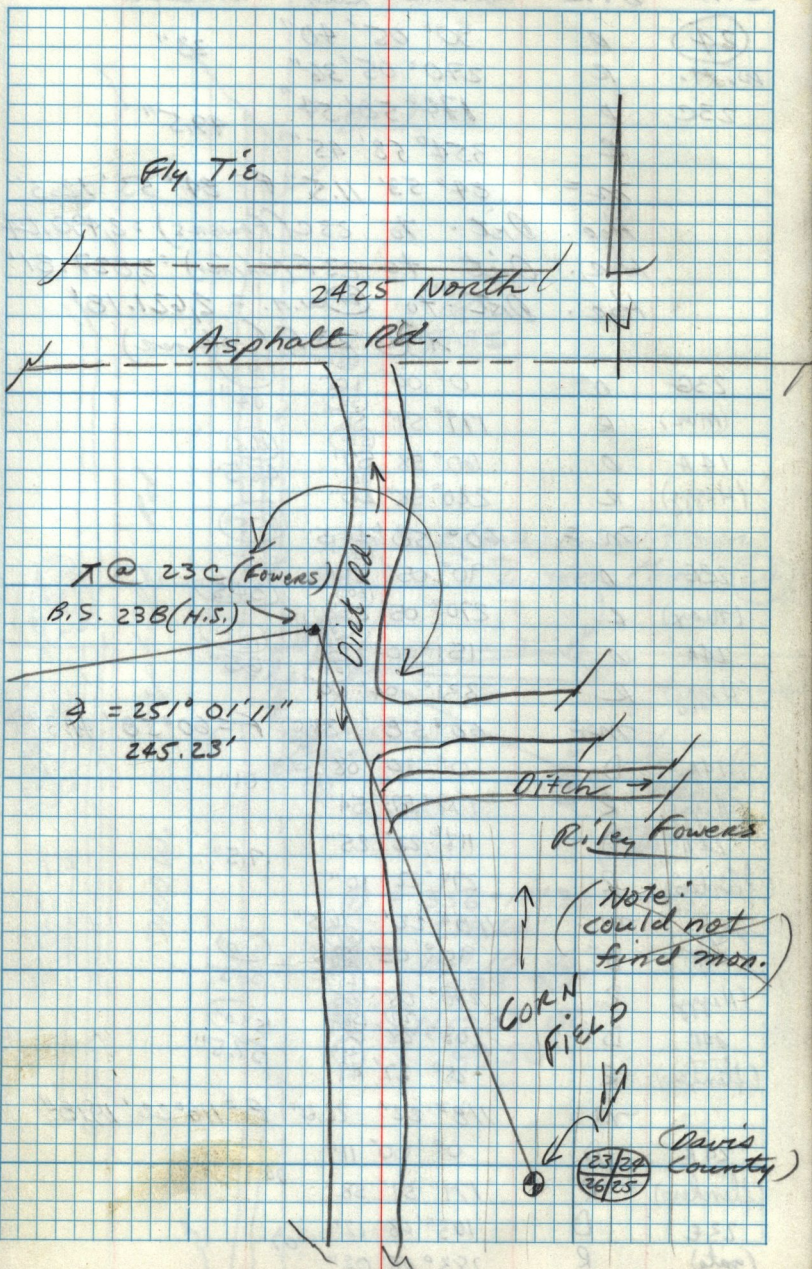 Fly Tie
2425 North
Asphalt Rd.
N
Dirt Rd.
⊼ @ 23C (Fowers)
B.S. 23B (H.S.)
∡ = 251° 01' 11"
245.23'
Ditch →
Riley Fowers
(Note:
could not
find mon.)
CORN
FIELD
23 24
26 25
(Davis
County)